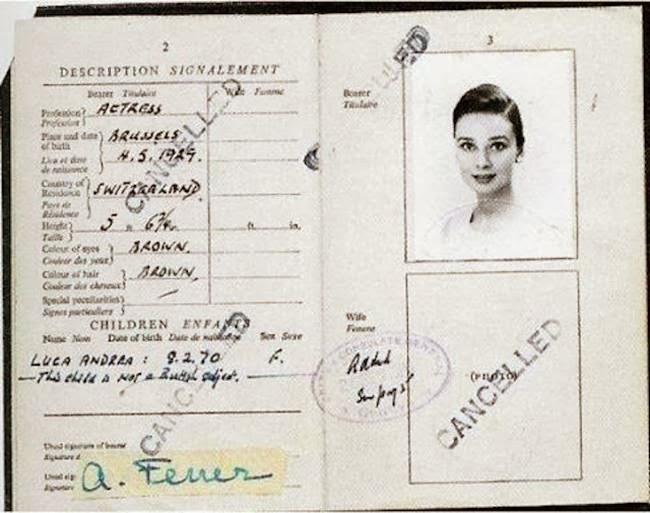 2
DESCRIPTION SIGNALEMENT
Bearer Titulaire Wife Femme
Profession } ACTRESS
Profession
Place and date } BRUSSELS
of birth
Lieu et date } 4.5.1929.
de naissance
Country of
Residence } SWITZERLAND
Pays de
Résidence
Height } 5 ft. in.
Taille
Colour of eyes } BROWN.
Couleur des yeux
Colour of hair } BROWN.
Couleur des cheveux
Special peculiarities }
Signes particuliers
CHILDREN ENFANTS
Name Nom Date of birth Date de naissance Sex Sexe
LUCA ANDREA : 8.2.70
This child is not a British subject.
Usual signature of bearer
Signature
Usual
Signature
A. Ferrer
CANCELLED
CANCELLED
3
Bearer
Titulaire
Wife
Femme
(PHOTO)
CANCELLED
CANCELLED